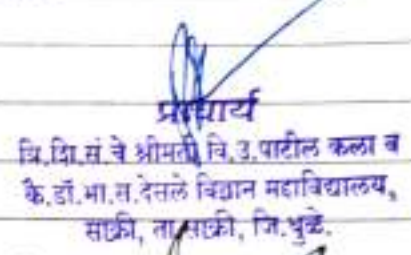 प्राचार्य
वि.शि.सं.चे श्रीमती वि.उ.पाटील कला व
कै.डॉ.भा.त.देसले विज्ञान महाविद्यालय,
साक्री, ता.साक्री, जि.धुळे.